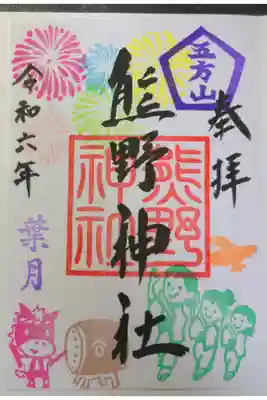 奉拝
五方山
熊野神社
熊野
神社
令和六年
葉月